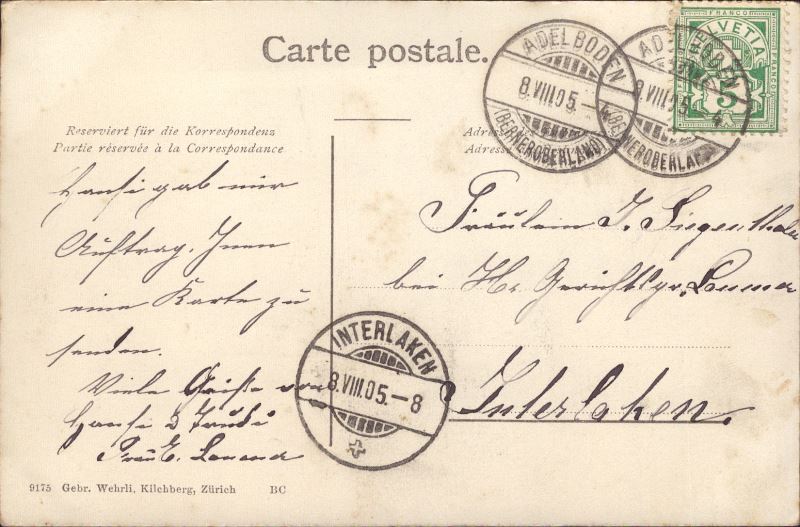 Carte postale.
FRANCO
HELVETIA
5
ADELBODEN
8.VIII.05.
(BERNEROBERLAND)
ADELBODEN
8.VIII.05. - 4
(BERNEROBERLAND)
Reserviert für die Korrespondenz
Partie réservée à la Correspondance
Adresse
Hansi gab mir
Auftrag, Ihnen
eine Karte zu
senden.
Viele Grüsse von
Hansi & Trudi
Frau E.
Fräulein J. Siegenthaler
bei Hr.
Interlaken.
INTERLAKEN
8.VIII.05.-8
9175 Gebr. Wehrli, Kilchberg, Zürich BC